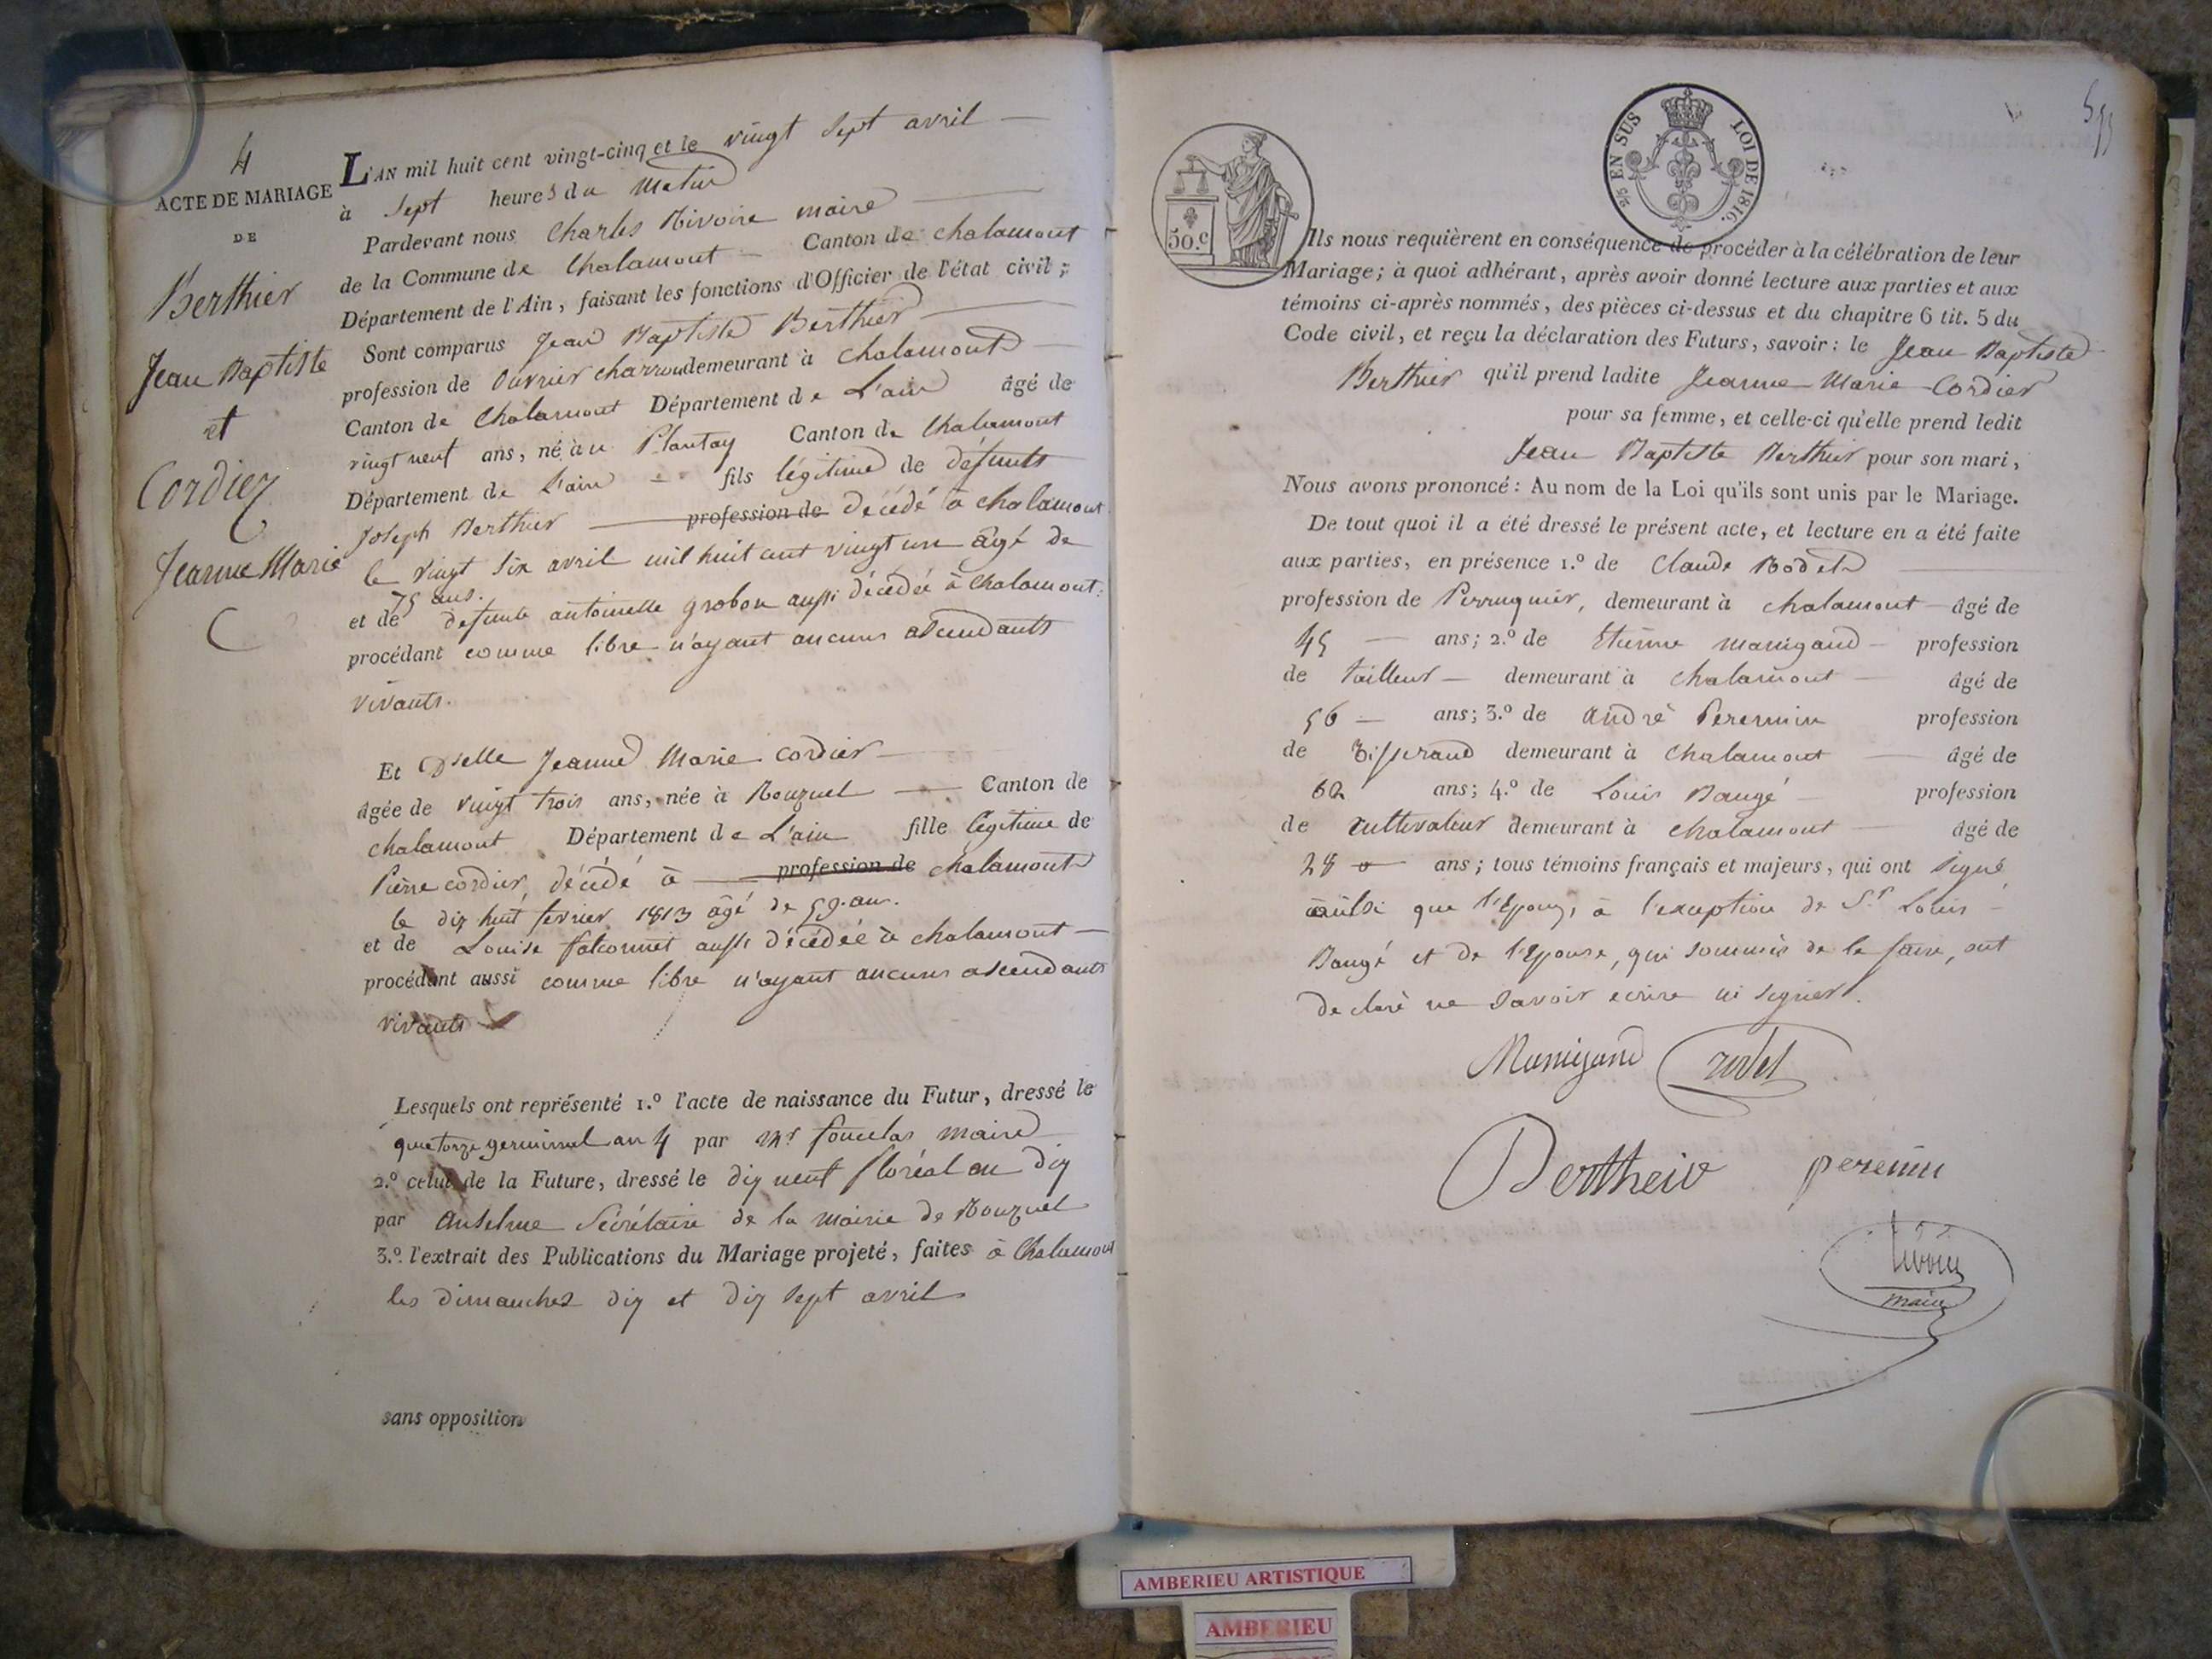 4
ACTE DE MARIAGE
DE
Berthier
Jean Baptiste
et
Cordier
Jeanne Marie
L'AN mil huit cent vingt-cinq et le vingt sept avril
à sept heures du matin
Pardevant nous Charles Rivoire maire
de la Commune de Chalamont Canton de chalamont
Département de l'Ain, faisant les fonctions d'Officier de l'état civil;
Sont comparus Jean Baptiste Berthier
profession de ouvrier charron demeurant à chalamont
Canton de Chalamont Département de L'ain âgé de
vingt neuf ans, né au Plantay Canton de Chalamont
Département de L'ain fils légitime de défunts
Joseph Berthier profession de décédé à chalamont
le vingt six avril mil huit cent vingt un âgé de
75 ans.
et de defunte antoinette grobon aussi décédée à chalamont
procédant comme libre n'ayant aucuns ascendants
vivants.
Et Dselle Jeanne Marie Cordier
âgée de vingt trois ans, née à Rouzuel Canton de
chalamont Département de L'ain fille légitime de
Pierre cordier, décédé à profession de chalamont
le dix huit fevrier 1813 âgé de 59 ans.
et de Louise falconnet aussi décédée à chalamont
procédant aussi comme libre n'ayant aucuns ascendants
vivants
Lesquels ont représenté 1.º l'acte de naissance du Futur, dressé le
quatorze germinal an 4 par Mr maire
2.º celui de la Future, dressé le dix neuf floréal an dix
par Anselme Secrétaire de la mairie de Rouzuel
3.º l'extrait des Publications du Mariage projeté, faites à Chalamont
les dimanches dix et dix sept avril
sans opposition
50.c
EN SUS LOI DE 1816.
Ils nous requièrent en conséquence de procéder à la célébration de leur
Mariage; à quoi adhérant, après avoir donné lecture aux parties et aux
témoins ci-après nommés, des pièces ci-dessus et du chapitre 6 tit. 5 du
Code civil, et reçu la déclaration des Futurs, savoir: le Jean Baptiste
Berthier qu'il prend ladite Jeanne Marie Cordier
pour sa femme, et celle-ci qu'elle prend ledit
Jean Baptiste Berthier pour son mari,
Nous avons prononcé: Au nom de la Loi qu'ils sont unis par le Mariage.
De tout quoi il a été dressé le présent acte, et lecture en a été faite
aux parties, en présence 1.º de Claude Rodet
profession de Perruquier, demeurant à chalamont âgé de
45 ans; 2.º de Etienne Manigand profession
de tailleur demeurant à chalamont âgé de
56 ans; 3.º de André Peremin profession
de Tisserand demeurant à Chalamont âgé de
62 ans; 4.º de Louis Baugé profession
de cultivateur demeurant à chalamont âgé de
28 ans; tous témoins français et majeurs, qui ont signé
ainsi que l'Epoux, à l'exception de Sr Louis
Baugé et de l'Epouse, qui sommés de le faire, ont
declaré ne savoir ecrire ni signer.
Manigand rodet
Bertheir peremin
rivoire
maire
AMBERIEU ARTISTIQUE
AMBERIEU